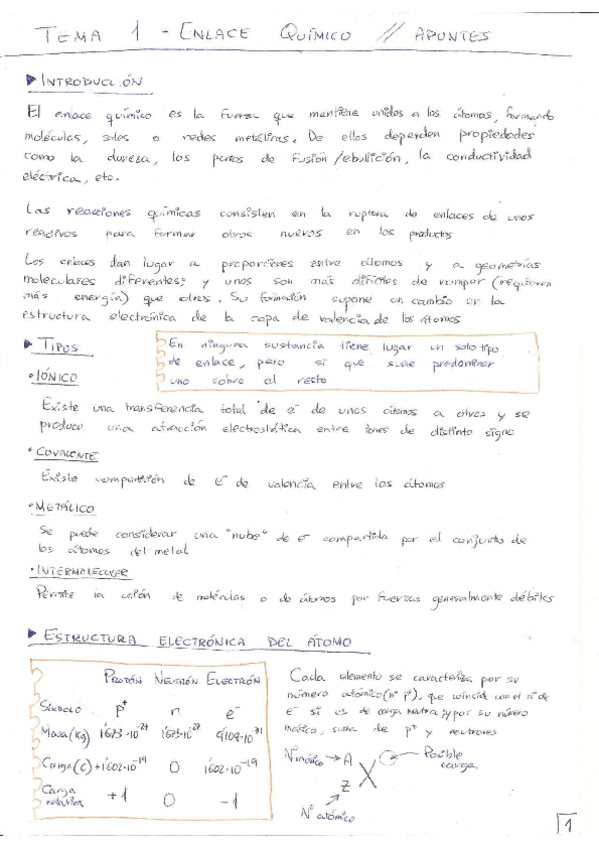 TEMA 1 - ENLACE QUÍMICO // APUNTES
▶ INTRODUCCIÓN
El enlace químico es la fuerza que mantiene unidos a los átomos, formando
moléculas, sales o redes metálicas. De ellos dependen propiedades
como la dureza, los puntos de fusión/ebullición, la conductividad
eléctrica, etc.
Las reacciones químicas consisten en la ruptura de enlaces de unos
reactivos para formar otros nuevos en los productos
Los enlaces dan lugar a proporciones entre átomos y a geometrías
moleculares diferentes; y unos son más difíciles de romper (requieren
más energía) que otros. Su formación supone un cambio en la
estructura electrónica de la capa de valencia de los átomos
▶ TIPOS
En ninguna sustancia tiene lugar un solo tipo
de enlace, pero sí que suele predominar
uno sobre el resto
• IÓNICO
Existe una transferencia total de e⁻ de unos átomos a otros y se
produce una atracción electrostática entre iones de distinto signo
• COVALENTE
Existe compartición de e⁻ de valencia entre los átomos
• METÁLICO
Se puede considerar una "nube" de e⁻ compartida por el conjunto de
los átomos del metal
• INTERMOLECULAR
Permite la unión de moléculas o de átomos por fuerzas generalmente débiles
▶ ESTRUCTURA ELECTRÓNICA DEL ÁTOMO
PROTÓN NEUTRÓN ELECTRÓN
Símbolo p⁺ n e⁻
Masa (kg) 1'673·10⁻²⁷ 9'109·10⁻³¹
Carga (C) +1'602·10⁻¹⁹ 0 1'602·10⁻¹⁹
Carga relativa +1 0 -1
Cada elemento se caracteriza por su
número atómico (nº p⁺), que coincide con el nº de
e⁻ si es de carga neutra; y por su número
másico, suma de p⁺ y neutrones
Nº másico → A
X
Posible carga
Z
Nº atómico
1